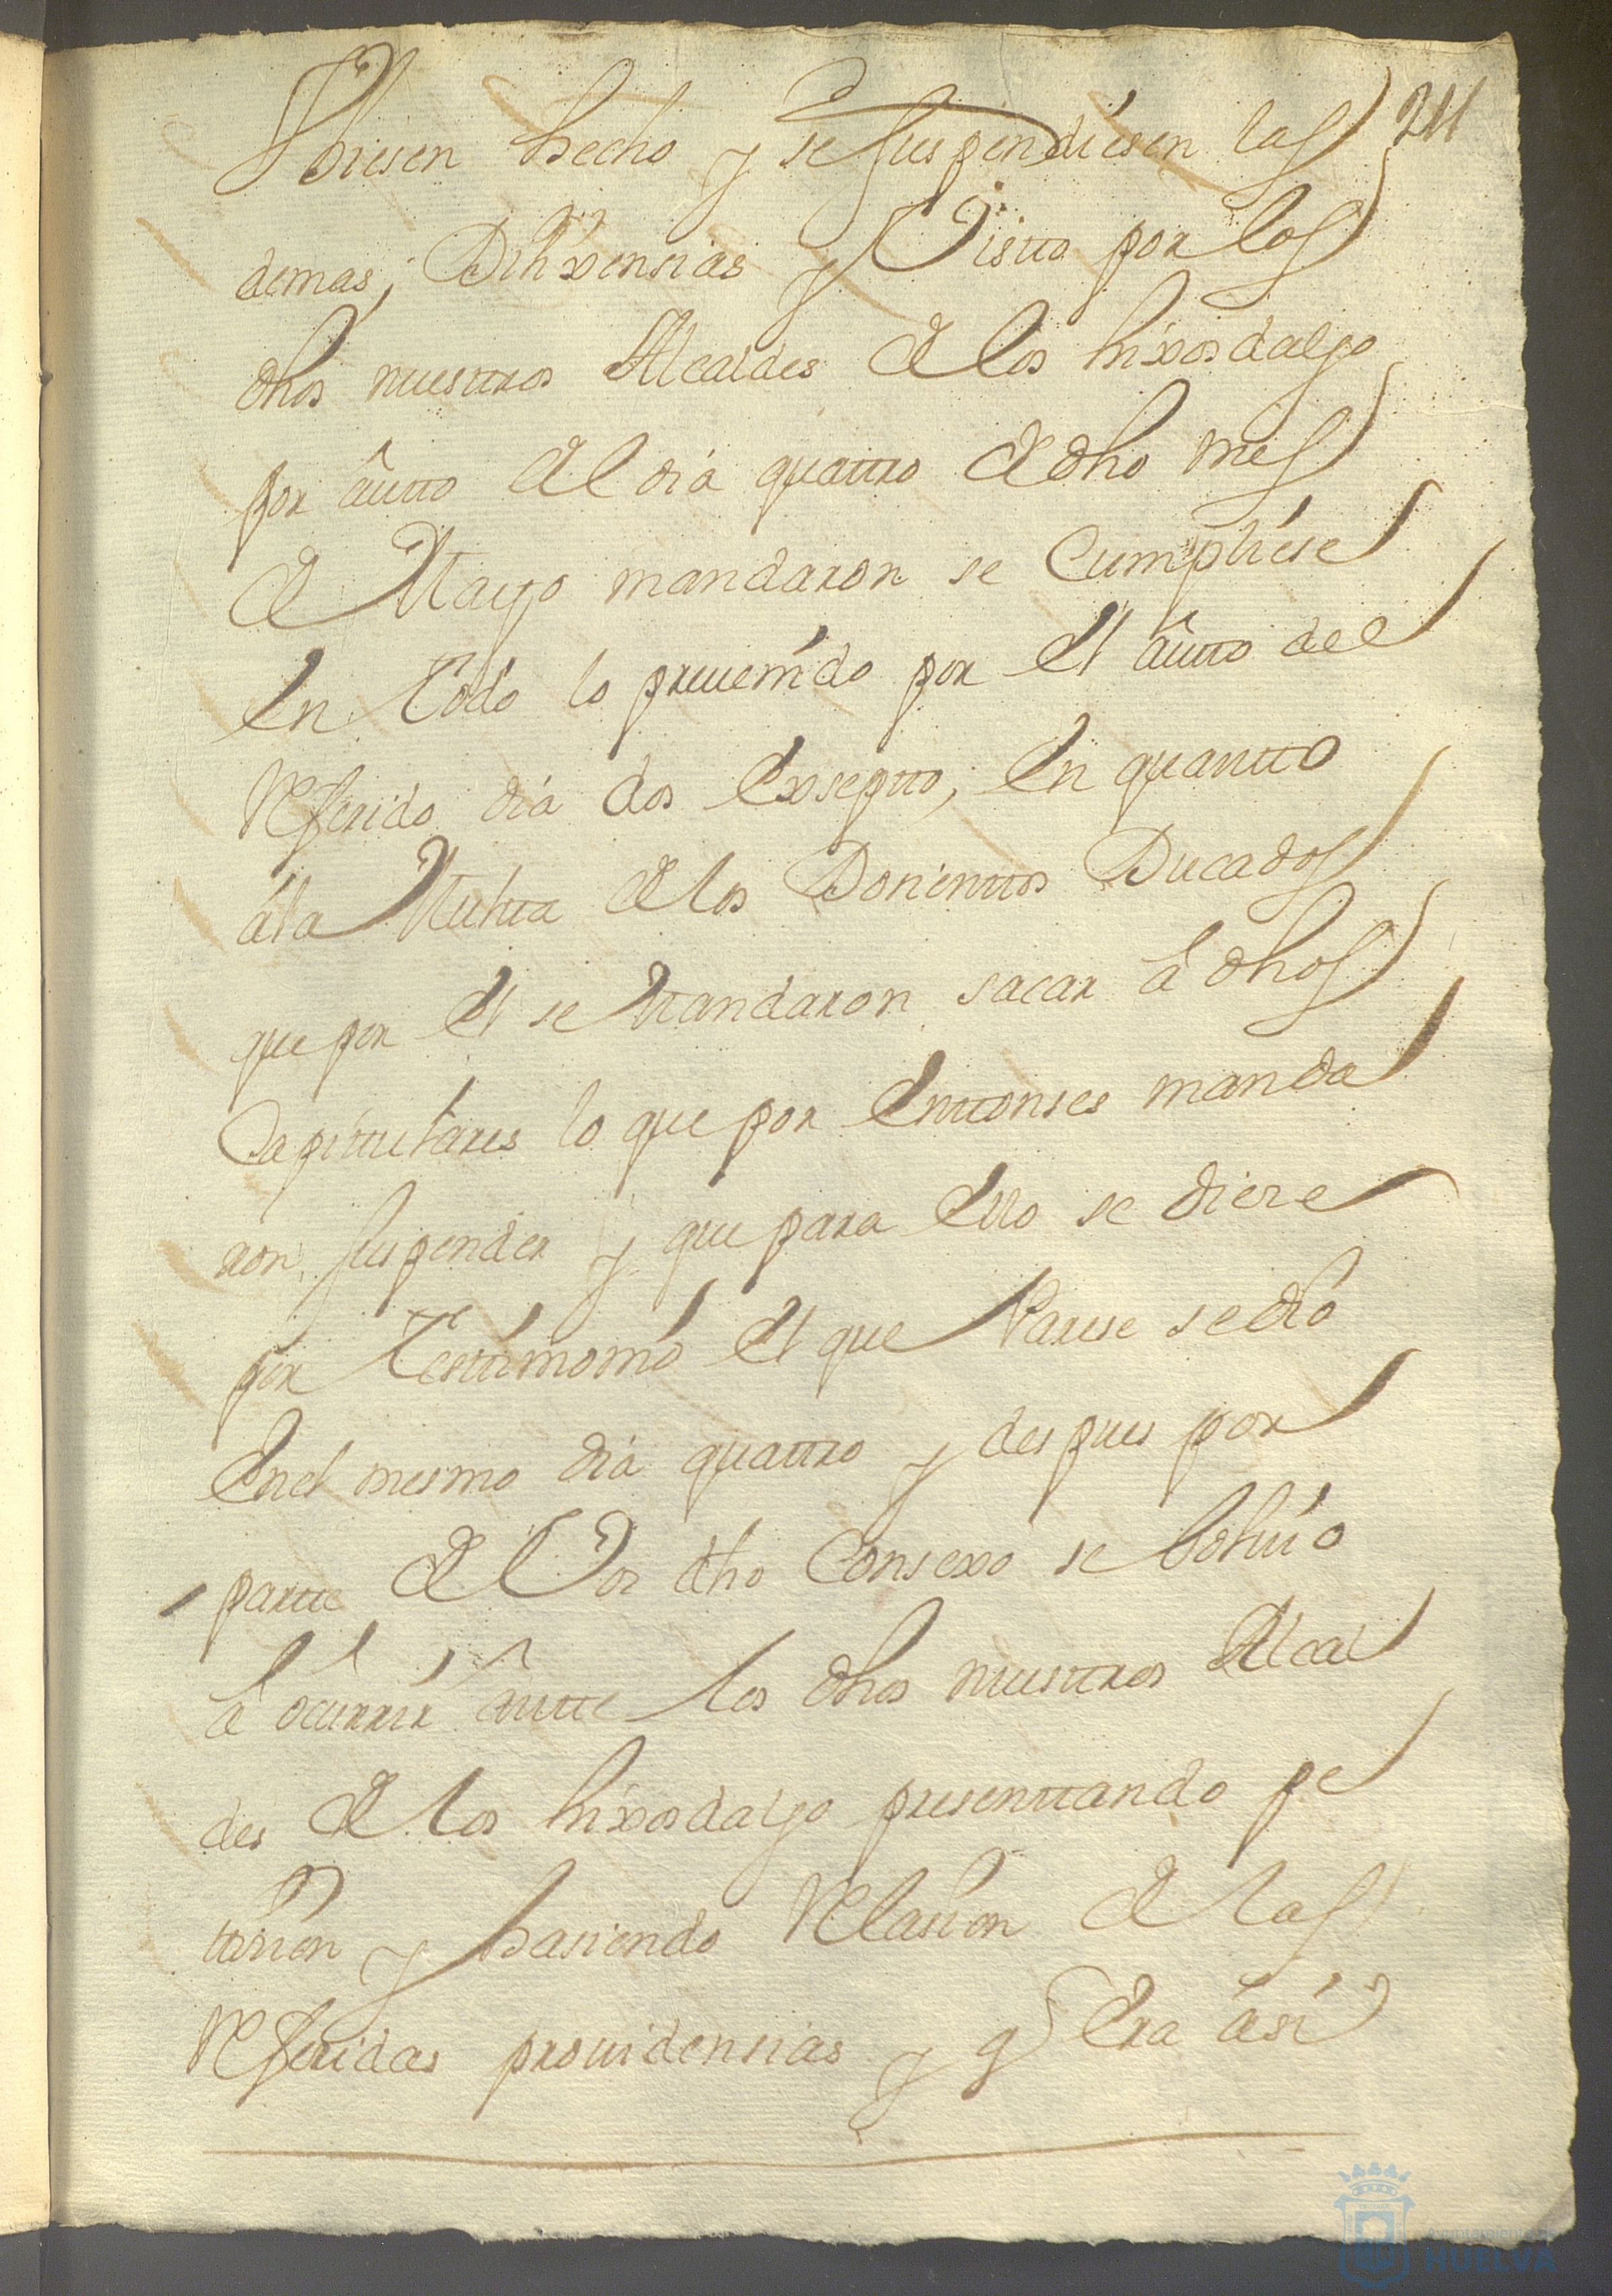 211
biesen hecho y se suspendiesen las
demas, Dilixensias y Visto por los
dhos nuestros Alcaldes de los hixosdalgo
por âutto del dia quattro de dho mes
de Mayo mandaron se Cumpliese
En todo lo preuenido por El âutto del
Referido dia dos Exsepto, En quantto
âla Multa de los Dosienttos Ducados
que por El se Mandaron sacar â dhos
Capittulares lo que por Enttonses manda
ron, suspender y que para Ello se diere
por Testtimonio El que Parese se dio
En el mesmo dia quattro y despues por
partte de Vos dho Consexo se boluio
â ocurrir ântte los dhos nuestros Alcal
des de los hixosdalgo presenttando pe
tision y hasiendo Relasion de las
Referidas prouidensias y q Era âsi
Ayuntamiento de
HUELVA